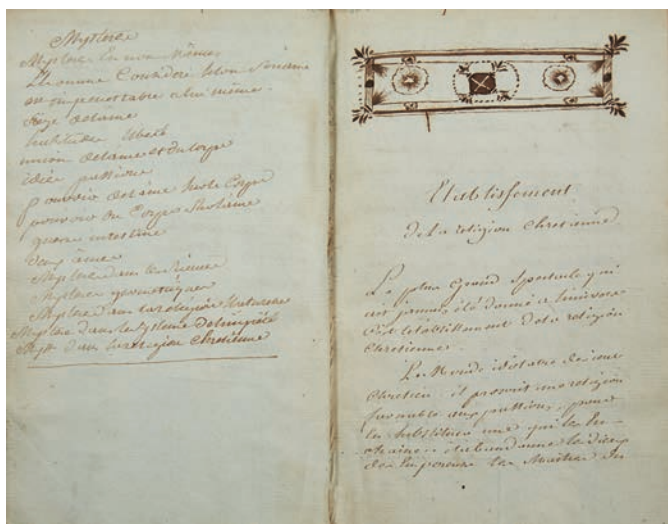 Mystere
Mystere en nous mêmes
L'homme Considéré selon
est impenetrable a lui même.
de lame
liberté
union de lame et du corps
idée passions
pouvoir de lame sur le Corps
pouvoir du Corps sur lame
guerre intestine
deux ames
Mystere dans les
Mysteres geometriques
Mystere dans la religion naturelle
Mystere dans le systeme de l'impieté
Myst dans la religion chretienne
Etablissement
de la religion chretienne
Le plus grand spectacle qui
ait jamais été donné a l'univers
est l'etablissement de la religion
chretienne.
Le Monde idolatre devient
chretien il proscrit une religion
favorable aux passions, pour
lui substituer une qui les en-
chaine. il abandonne les dieux
des les Maitres du